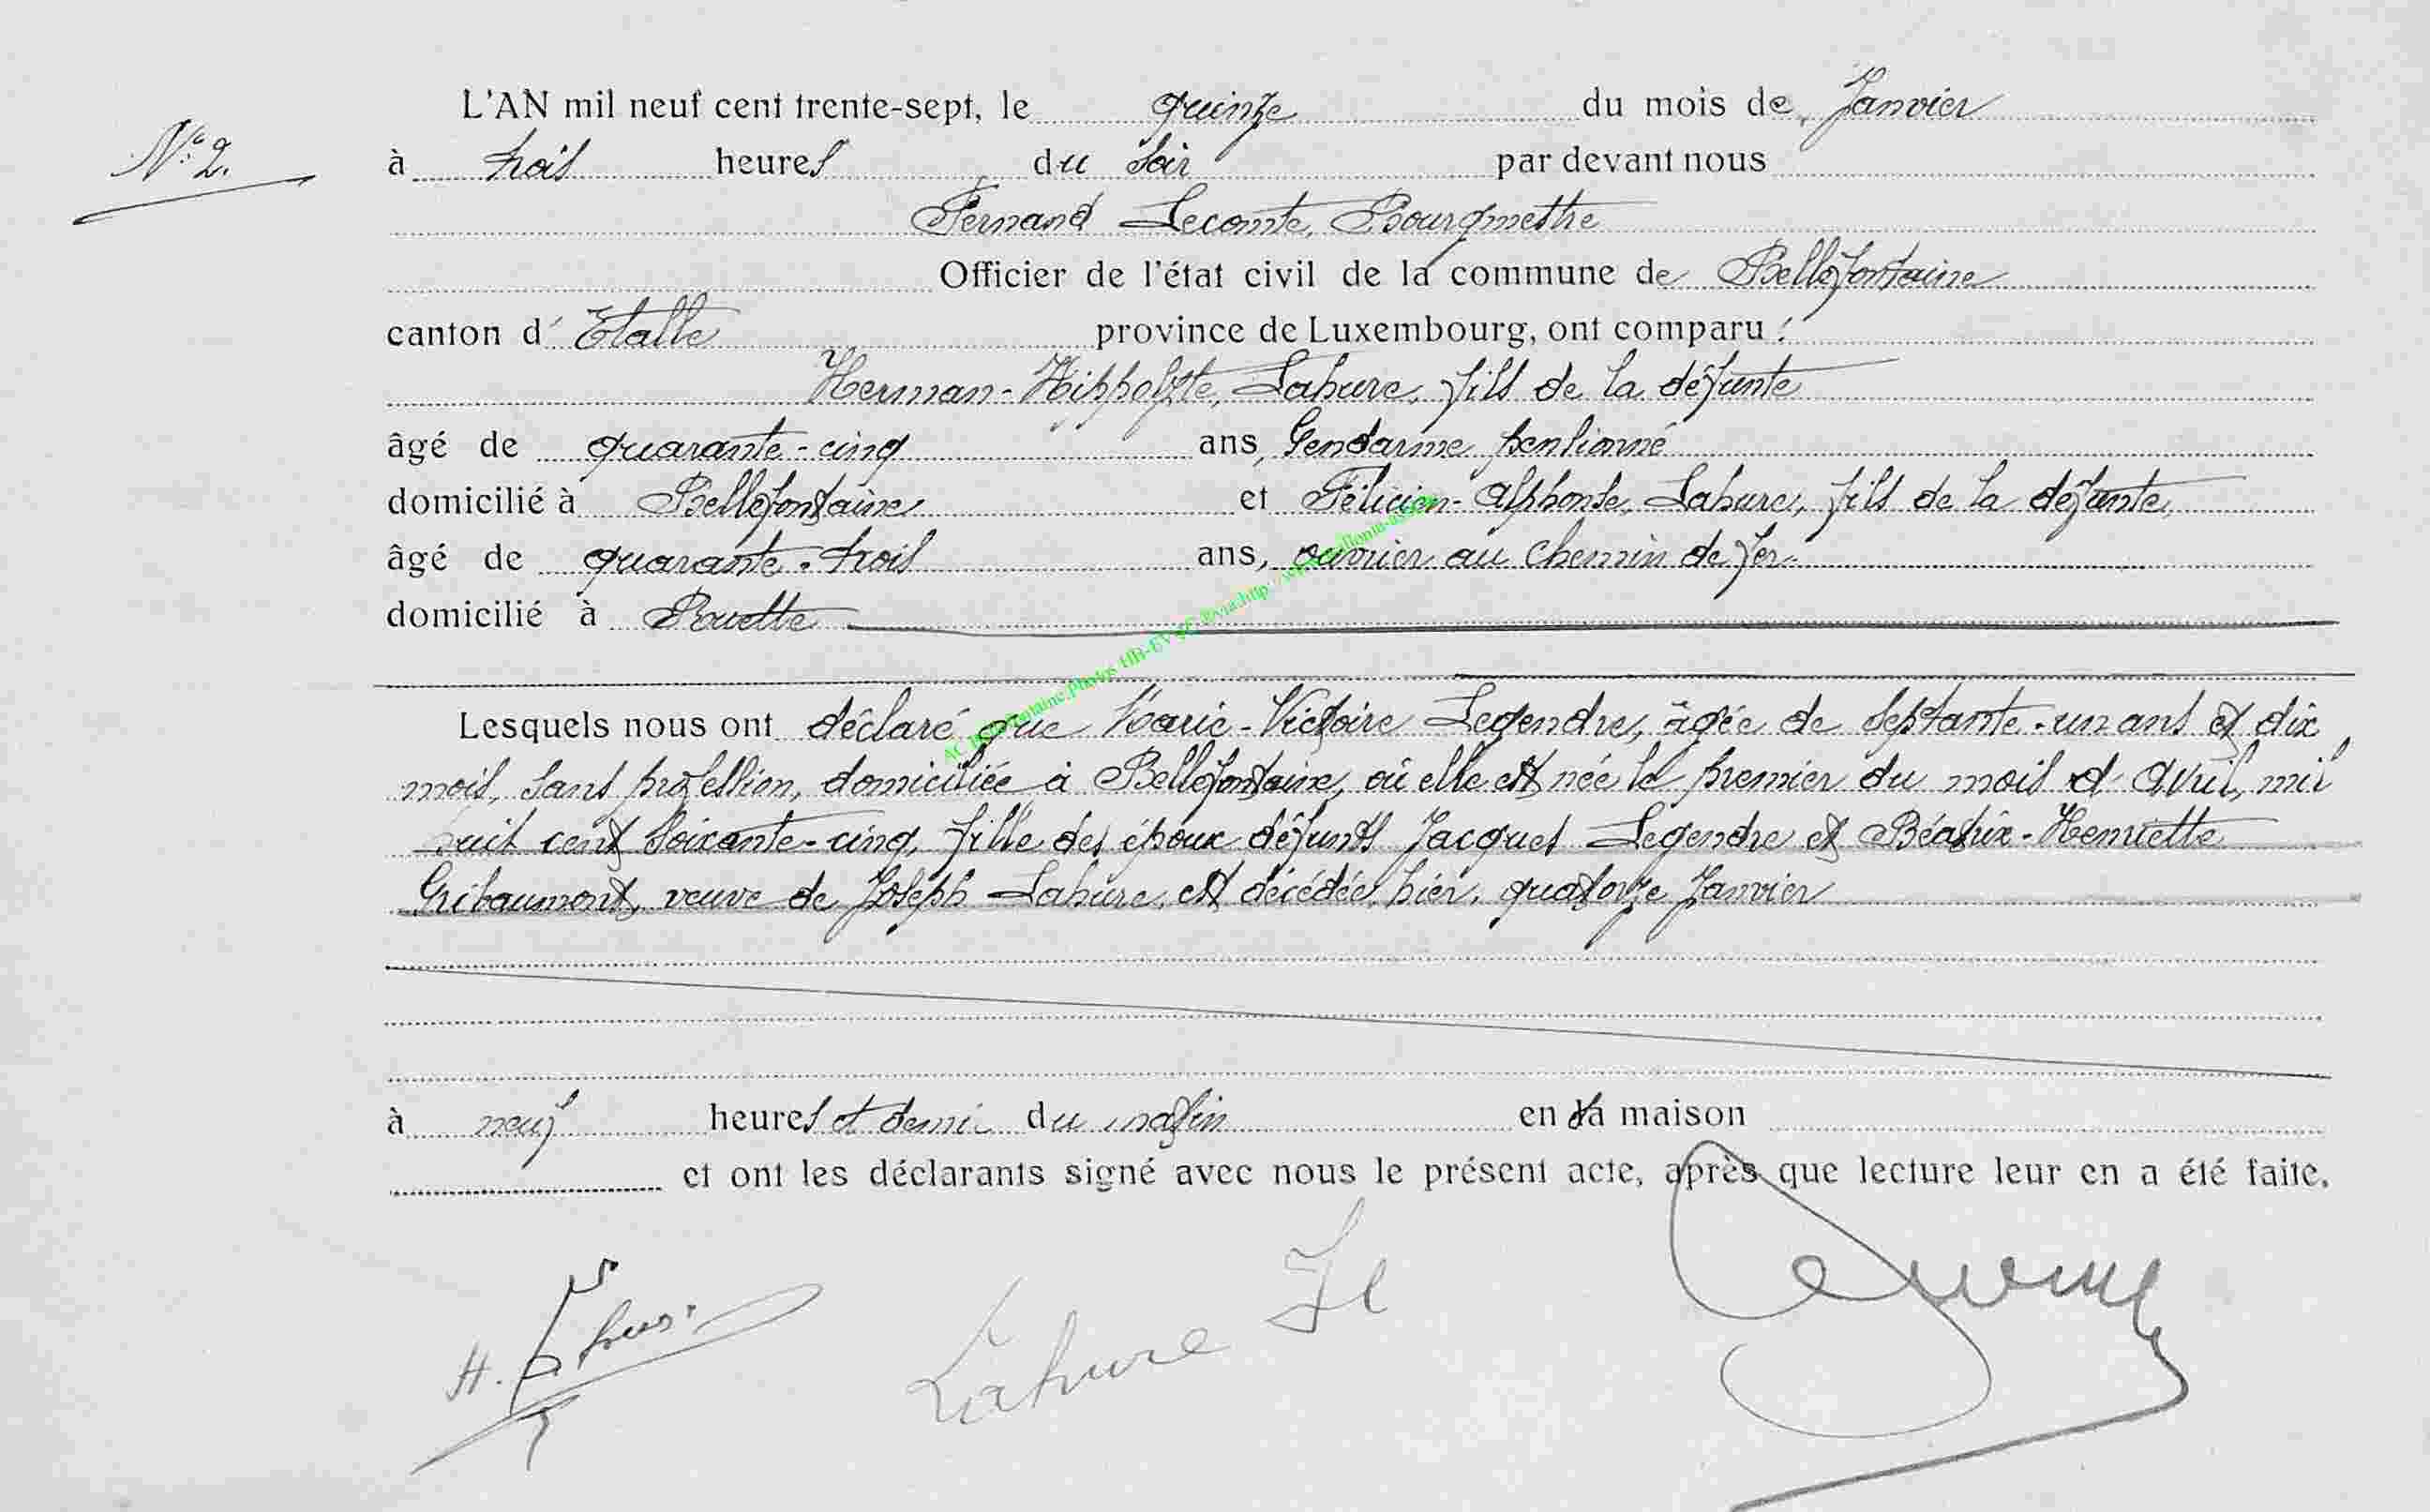 L'AN mil neuf cent trente-sept, le quinze du mois de Janvier
N° 2.
à trois heures du soir par devant nous
Fernand Lecomte, Bourgmestre
Officier de l'état civil de la commune de Bellefontaine
canton d' Etalle province de Luxembourg, ont comparu :
Herman-Hippolyte, Lahure, fils de la défunte
âgé de quarante-cinq ans, Gendarme pensionné
domicilié à Bellefontaine et Félicien-Alphonse, Lahure, fils de la défunte,
âgé de quarante-trois ans, ouvrier au chemin de fer
domicilié à Ruette
Lesquels nous ont déclaré que Marie-Victoire Legendre, âgée de septante-un ans et dix
mois, sans profession, domiciliée à Bellefontaine, où elle est née le premier du mois d'Avril, mil
huit cent soixante-cinq, fille des époux défunts Jacques Legendre et Béatrix-Henriette
Gribaumont, veuve de Joseph Lahure, est décédée, hier, quatorze Janvier
à neuf heures et demi du matin en sa maison
et ont les déclarants signé avec nous le présent acte, après que lecture leur en a été faite.
H. Lahure
Lahure Fé